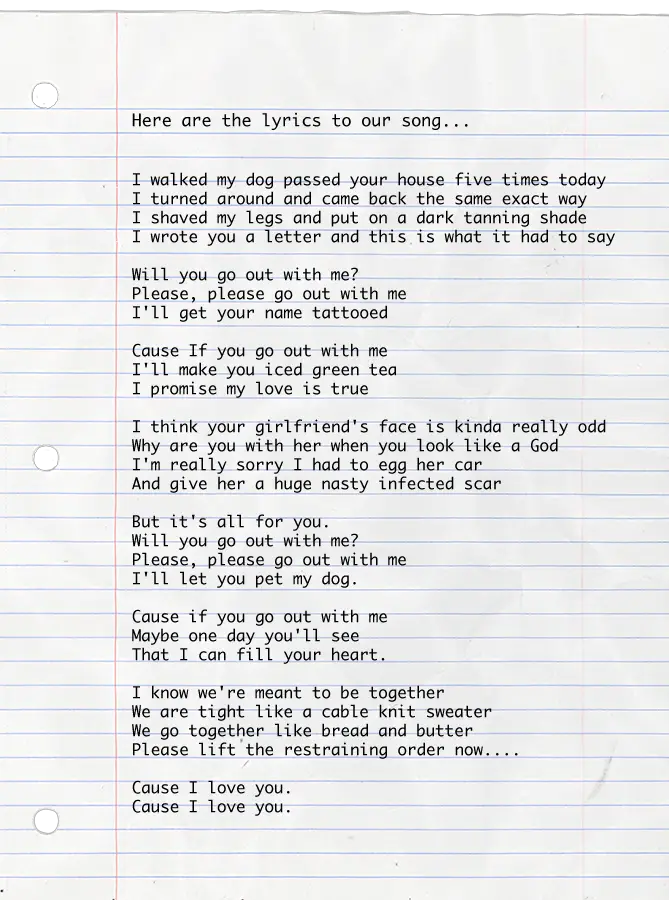 Here are the lyrics to our song...
I walked my dog passed your house five times today
I turned around and came back the same exact way
I shaved my legs and put on a dark tanning shade
I wrote you a letter and this is what it had to say
Will you go out with me?
Please, please go out with me
I'll get your name tattooed
Cause If you go out with me
I'll make you iced green tea
I promise my love is true
I think your girlfriend's face is kinda really odd
Why are you with her when you look like a God
I'm really sorry I had to egg her car
And give her a huge nasty infected scar
But it's all for you.
Will you go out with me?
Please, please go out with me
I'll let you pet my dog.
Cause if you go out with me
Maybe one day you'll see
That I can fill your heart.
I know we're meant to be together
We are tight like a cable knit sweater
We go together like bread and butter
Please lift the restraining order now....
Cause I love you.
Cause I love you.